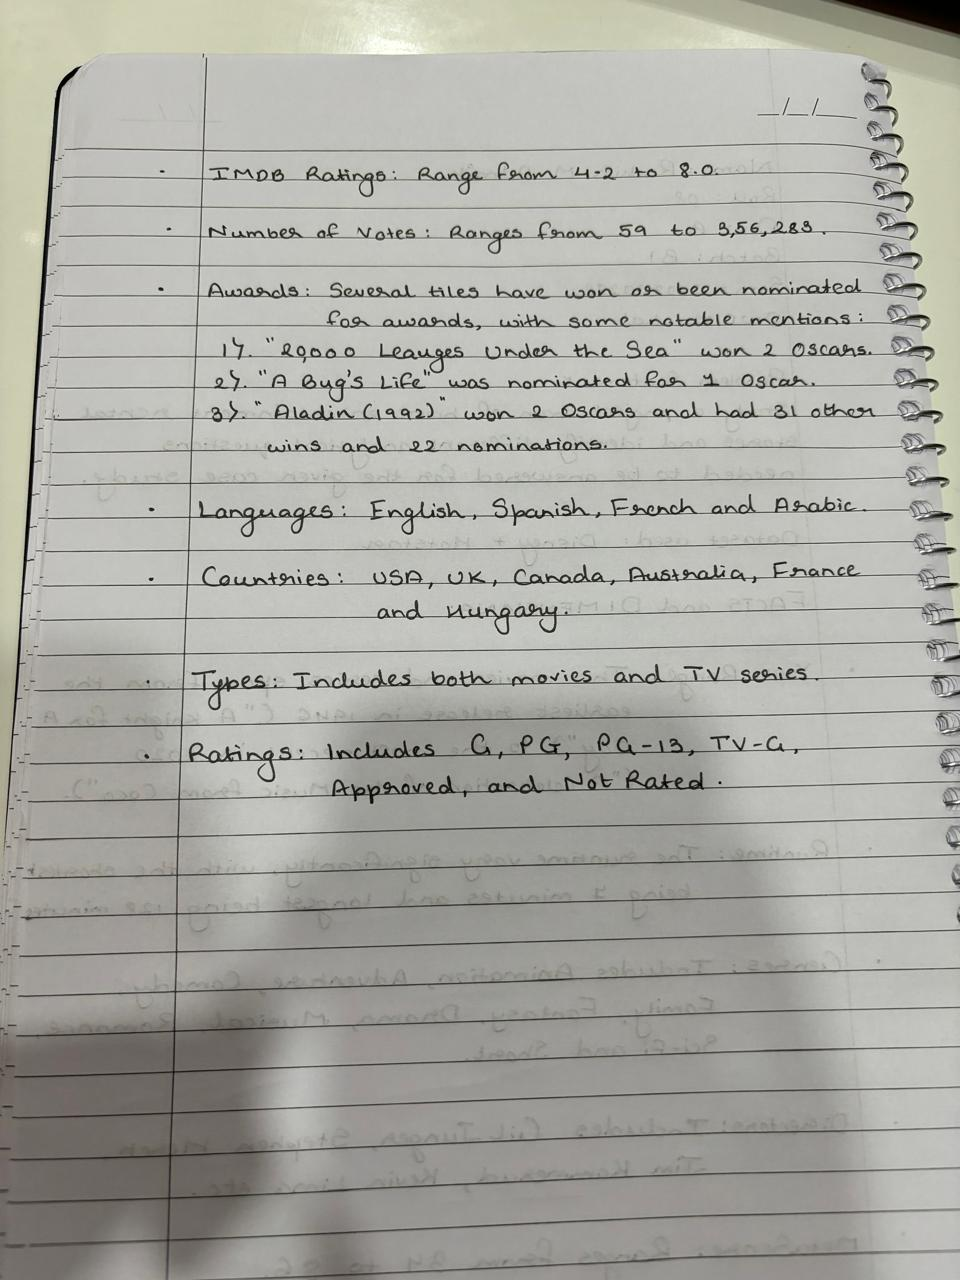 __/__/__
• IMDB Ratings: Range from 4.2 to 8.0.
• Number of Votes: Ranges from 59 to 3,56,283.
• Awards: Several tiles have won or been nominated
for awards, with some notable mentions:
1). "20,000 Leauges Under the Sea" won 2 Oscars.
2). "A Bug's Life" was nominated for 1 Oscar.
3). "Aladin (1992)" won 2 Oscars and had 31 other
wins and 22 nominations.
• Languages: English, Spanish, French and Arabic.
• Countries: USA, UK, Canada, Australia, France
and Hungary.
• Types: Includes both movies and TV series.
• Ratings: Includes G, PG, PG-13, TV-G,
Approved, and Not Rated.